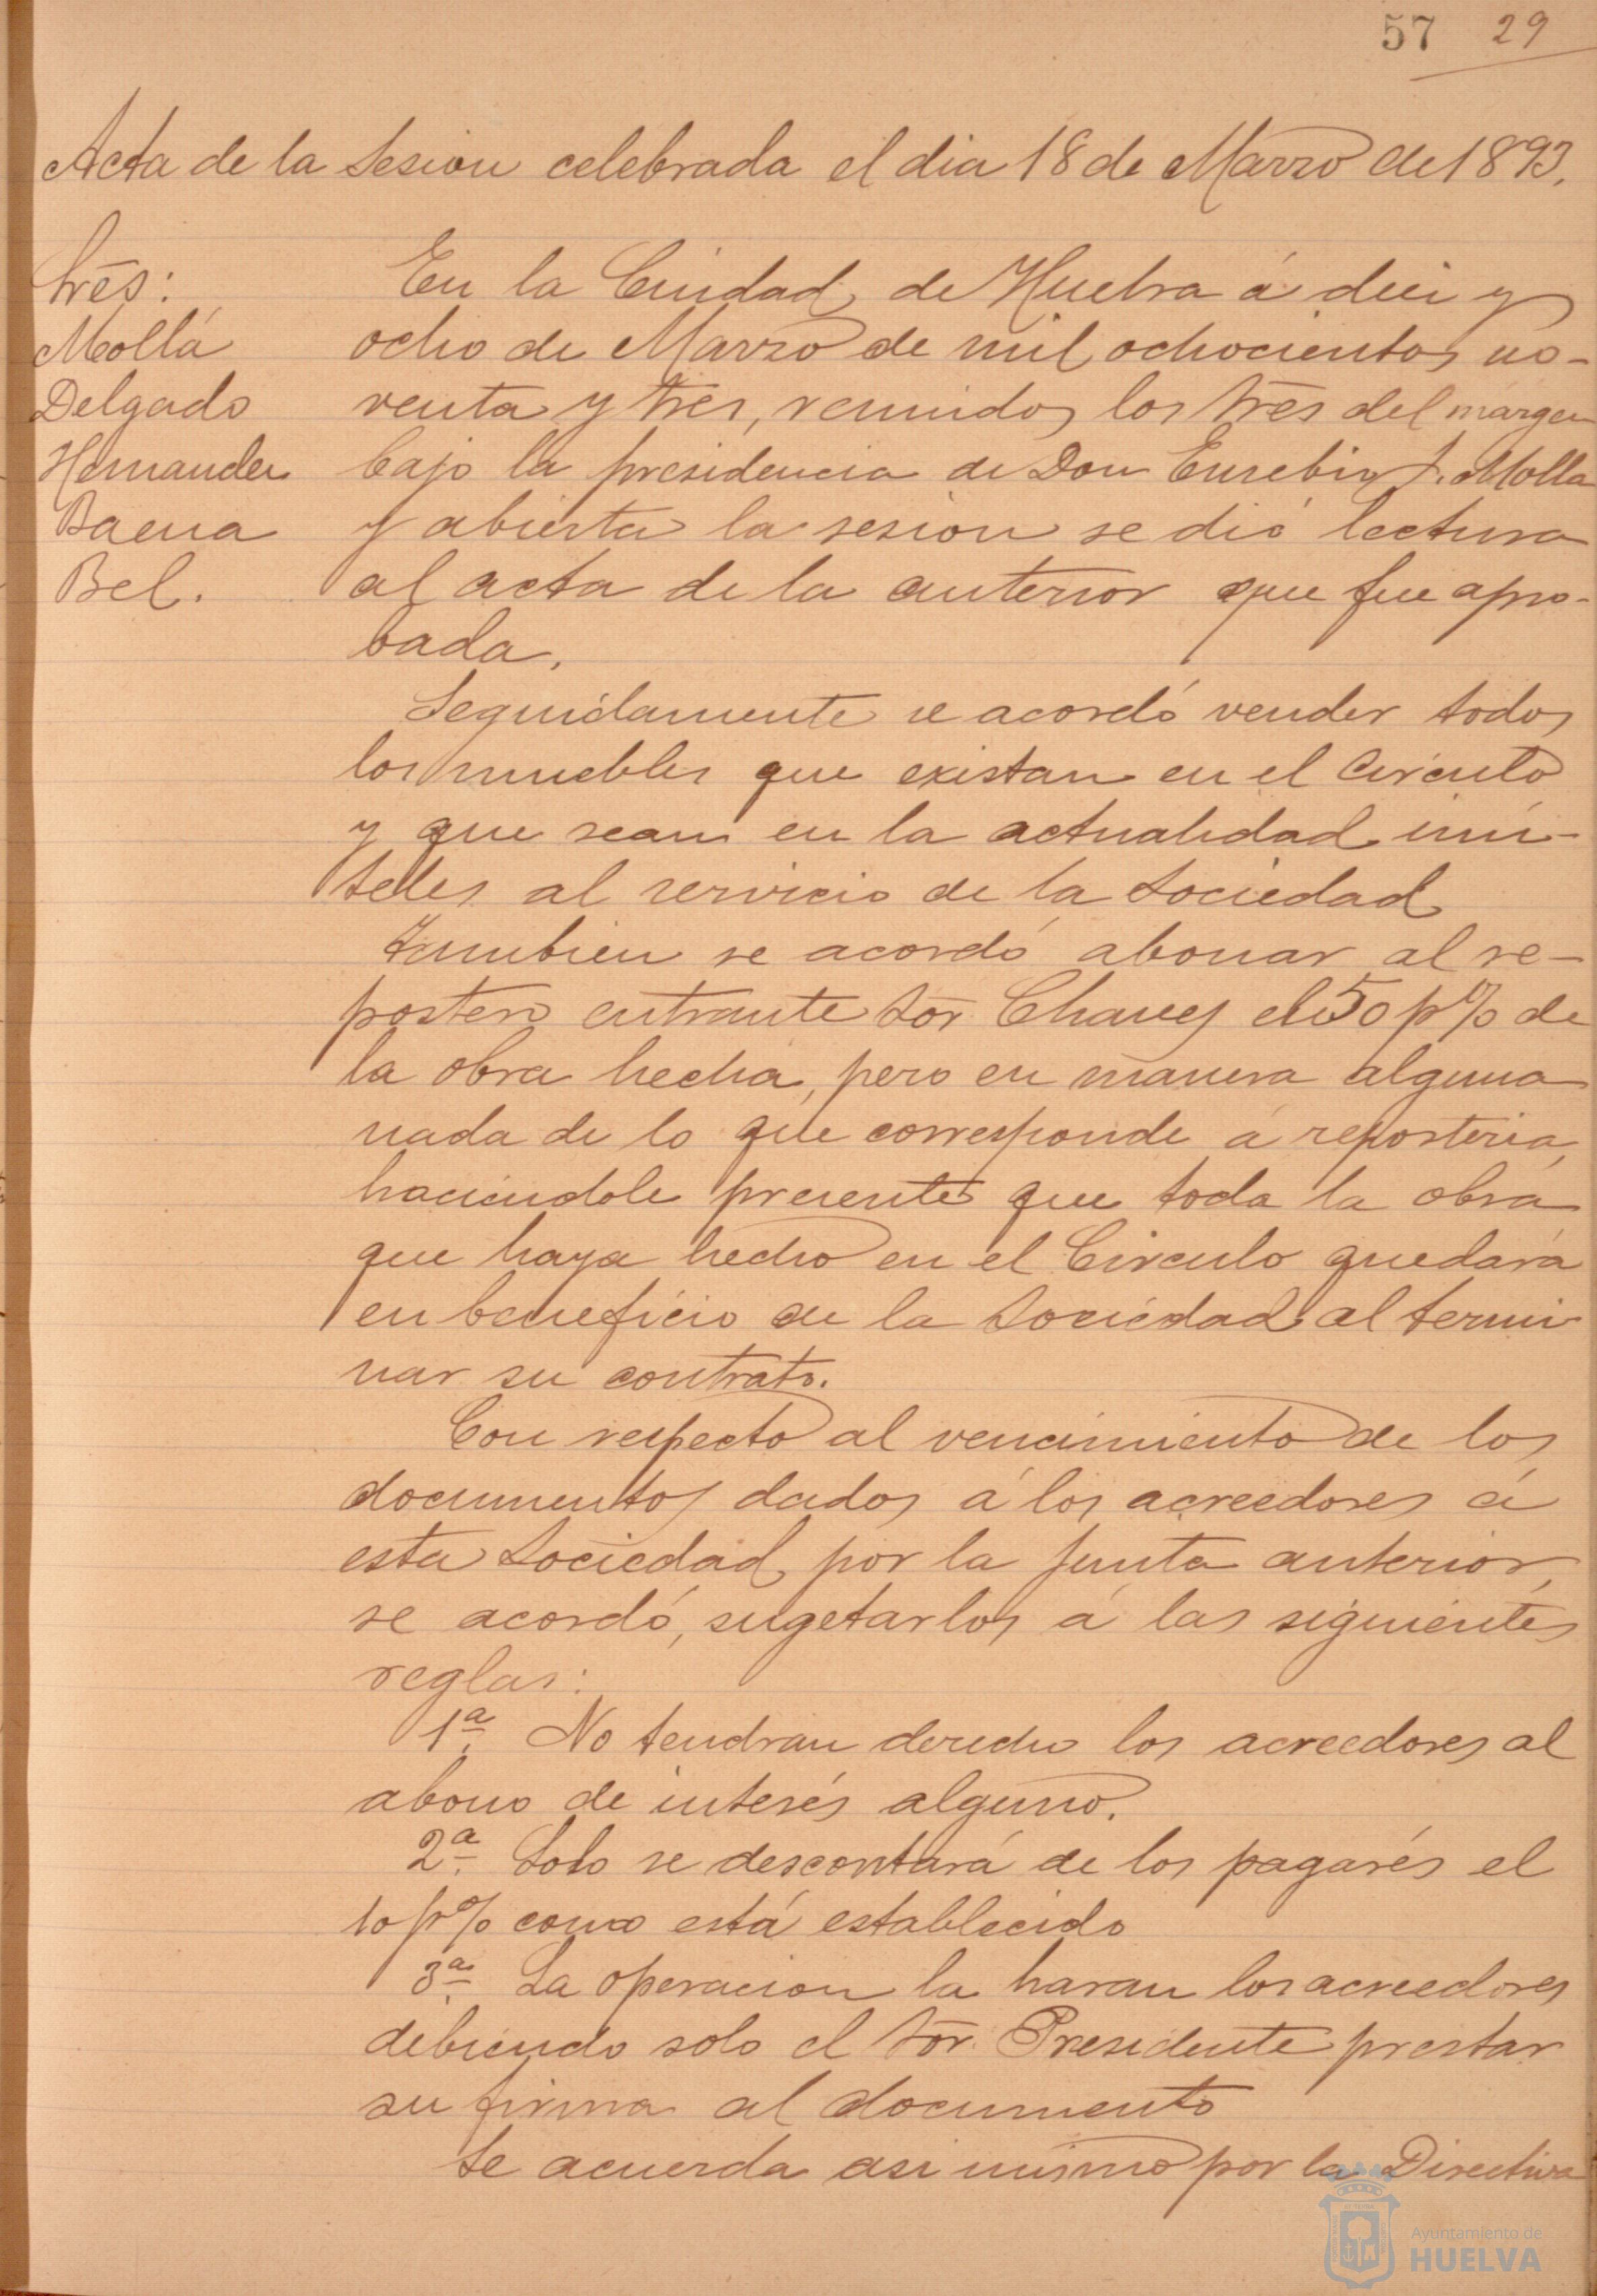 57 29
Acta de la Sesion celebrada el dia 18 de Marzo de 1893.
Sres:
Mollá
Delgado
Hernandez
Baena
Bel.
En la Ciudad de Huelva á diez y
ocho de Marzo de mil ochocientos no-
venta y tres, reunidos los Sres del márgen
bajo la presidencia de Don Eusebio J. Molla
y abierta la sesion se dió lectura
al acta de la anterior que fue apro-
bada.
Seguidamente se acordó vender todos
los muebles que existan en el Circulo
y que sean en la actualidad inú-
teles al servicio de la Sociedad
Tambien se acordó abonar al re-
postero entrante Sor Chaves el 50 p% de
la obra hecha, pero en manera alguna
nada de lo que corresponde á reposteria,
haciendole presente que toda la obra
que haya hecho en el Circulo quedará
en beneficio de la Sociedad al termi-
nar su contrato.
Con respecto al vencimiento de los
documentos dados á los acreedores á
esta Sociedad por la Junta anterior,
se acordó, sugetarlos á las siguientes
reglas:
1ª No tendran derecho los acreedores al
abono de interés alguno.
2ª Solo se descontará de los pagarés el
10 p% como está establecido
3ª La operacion la haran los acreedores
debiendo solo el Sor Presidente prestar
su firma al documento
Se acuerda asi mismo por la Directiva
Ayuntamiento de
HUELVA